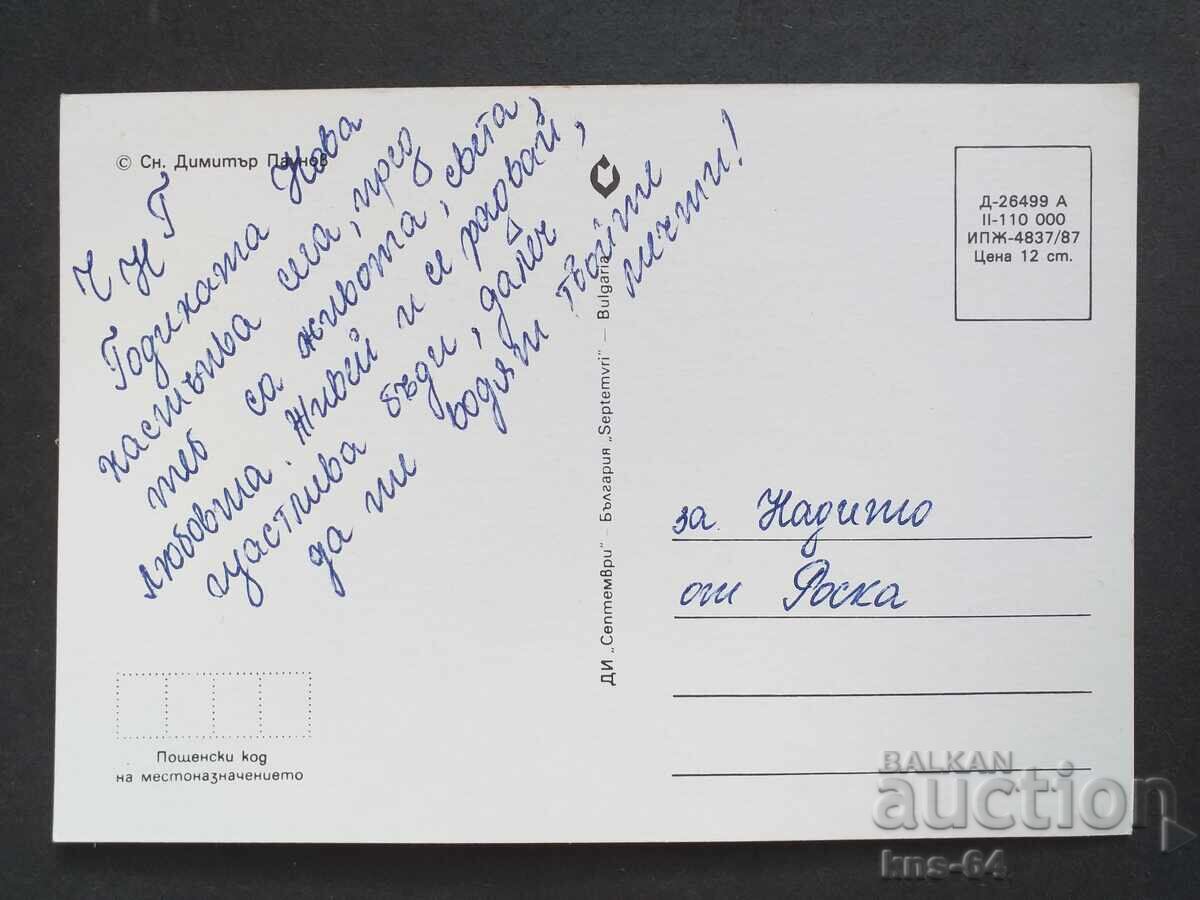 © Сн. Димитър Паунов
ЧНГ
Годината Нова
настъпва сега, пред
теб са живота, света,
любовта. Живей и се радвай,
щастлива бъди, далеч
да ти водят твоите
мечти!
ДИ „Септември" – България „Septemvri" – Bulgaria
Д-26499 А
II-110 000
ИПЖ-4837/87
Цена 12 ст.
за Надито
от Роска
Пощенски код
на местоназначението
BALKAN
auction
kns-64